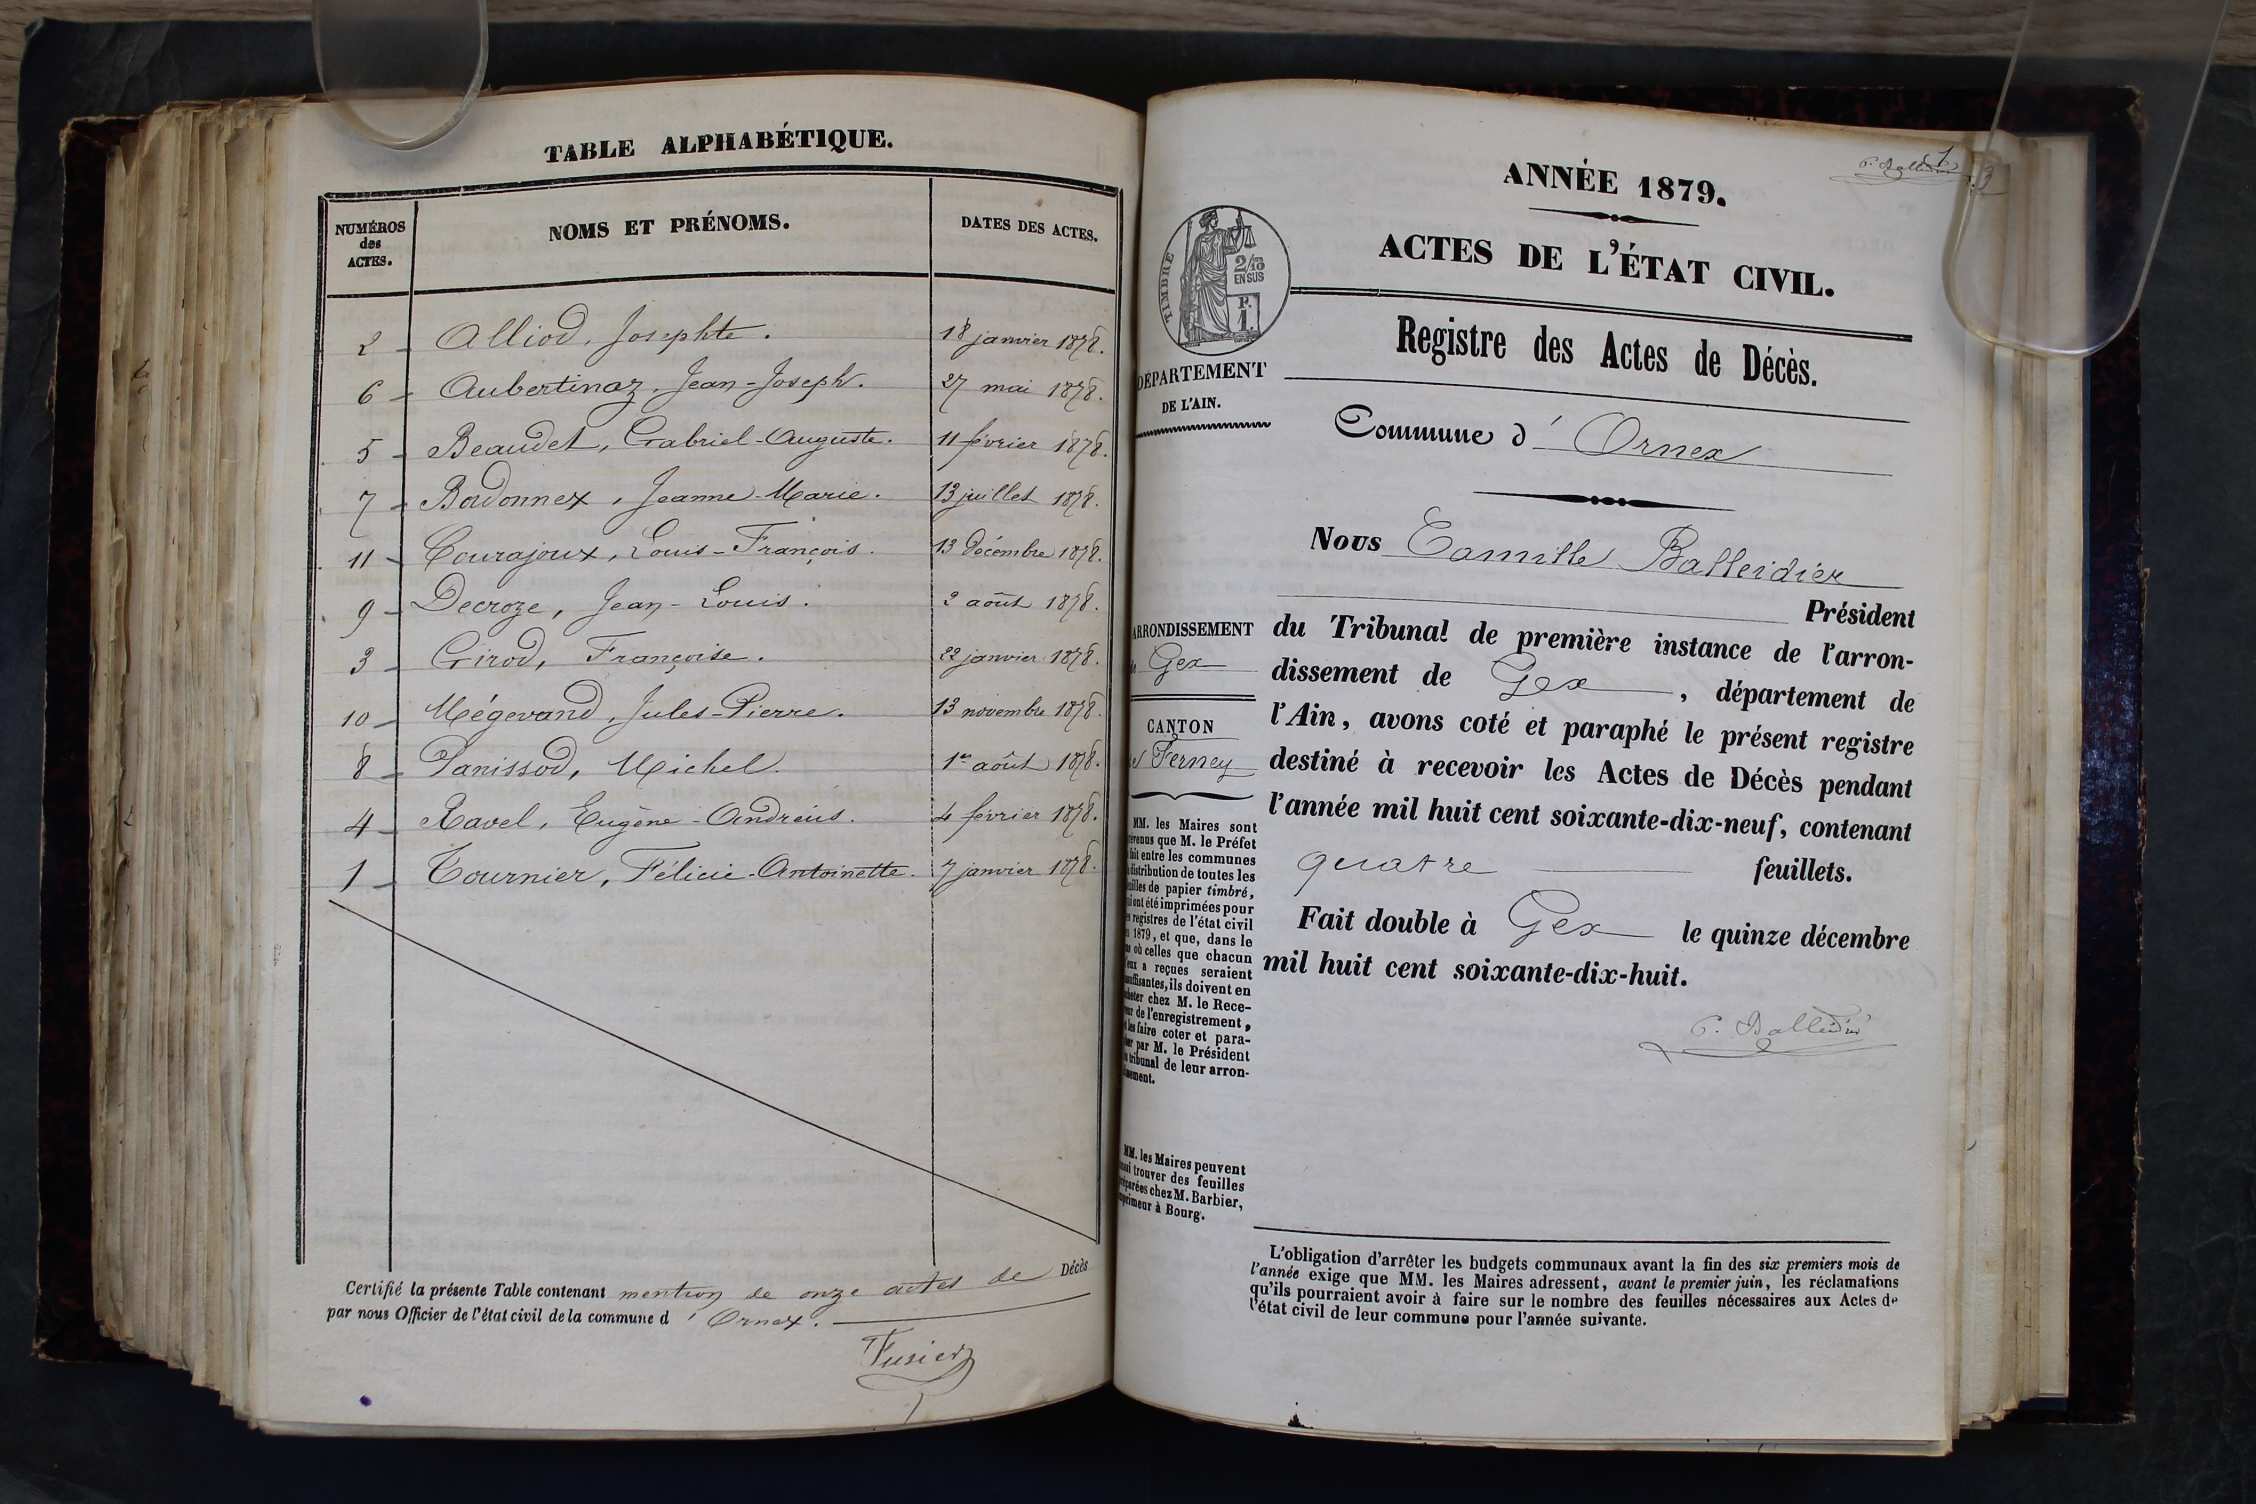 TABLE ALPHABÉTIQUE.
NUMÉROS
des
ACTES.
NOMS ET PRÉNOMS.
DATES DES ACTES.
2 - Alliod, Josephte. 18 janvier 1878.
6 - Aubertinaz, Jean-Joseph. 27 mai 1878.
5 - Beaudet, Gabriel-Auguste. 11 février 1878.
7 - Bordonnex, Jeanne-Marie. 13 juillet 1878.
11 - Courajoux, Louis-François. 13 décembre 1878.
9 - Decroze, Jean-Louis. 2 août 1878.
3 - Girod, Françoise. 22 janvier 1878.
10 - Mégevand, Jules-Pierre. 13 novembre 1878.
8 - Panissod, Michel. 1er août 1878.
4 - Ravel, Eugène-Andréus. 4 février 1878.
1 - Tournier, Félicie-Antoinette. 7 janvier 1878.
Certifié la présente Table contenant mention de onze actes de Décès
par nous Officier de l'état civil de la commune d'Ornex.
Fusier
C. Balleidier
1
ANNÉE 1879.
ACTES DE L'ÉTAT CIVIL.
TIMBRE
2/10
EN SUS
Registre des Actes de Décès.
DÉPARTEMENT
DE L'AIN.
Commune d'Ornex
Nous Camille Balleidier
Président
du Tribunal de première instance de l'arron-
dissement de Gex, département de
l'Ain, avons coté et paraphé le présent registre
destiné à recevoir les Actes de Décès pendant
l'année mil huit cent soixante-dix-neuf, contenant
quatre feuillets.
Fait double à Gex le quinze décembre
mil huit cent soixante-dix-huit.
C. Balleidier
ARRONDISSEMENT
Gex
CANTON
Ferney
MM. les Maires sont
que M. le Préfet
fait entre les communes
distribution de toutes les
de papier timbré,
ont été imprimées pour
registres de l'état civil
1879, et que, dans le
où celles que chacun
a reçues seraient
ils doivent en
chez M. le Rece-
de l'enregistrement,
les faire coter et para-
par M. le Président
tribunal de leur arron-
MM. les Maires peuvent
trouver des feuilles
chez M. Barbier,
à Bourg.
L'obligation d'arrêter les budgets communaux avant la fin des six premiers mois de
l'année exige que MM. les Maires adressent, avant le premier juin, les réclamations
qu'ils pourraient avoir à faire sur le nombre des feuilles nécessaires aux Actes de
l'état civil de leur commune pour l'année suivante.